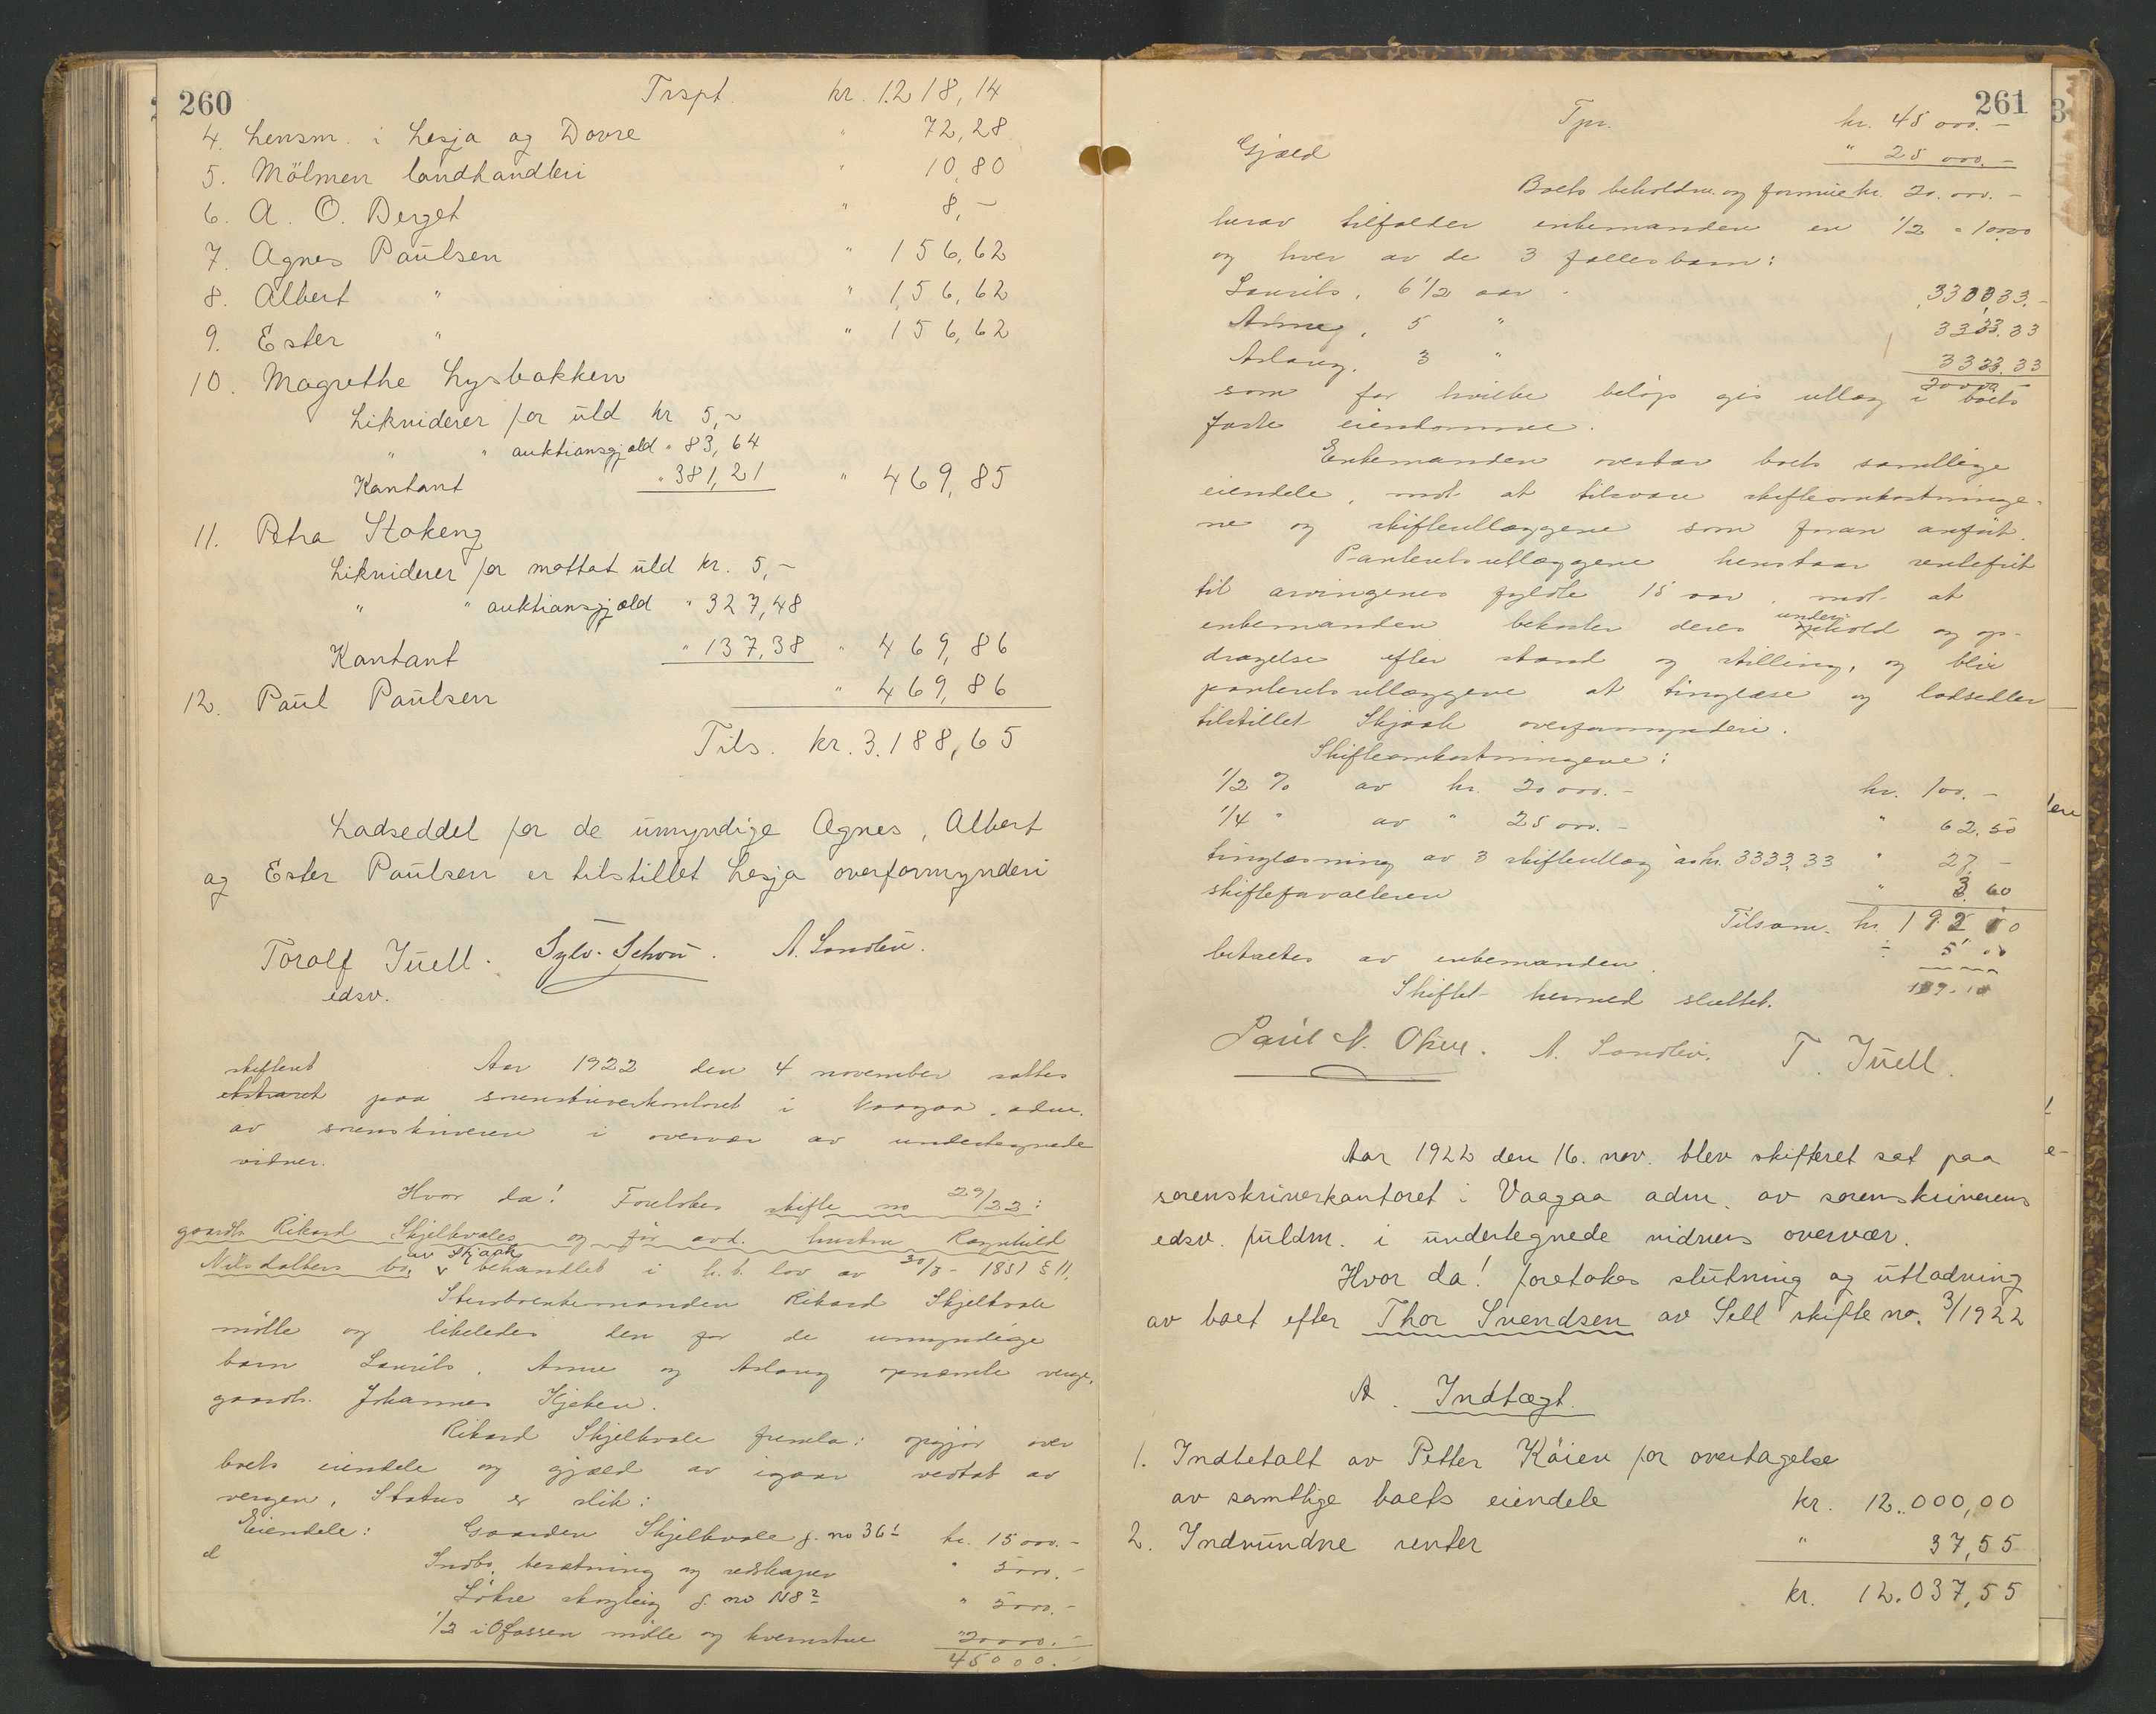 260
Trspt. kr. 1.218,14
4. Lensm. i Lesja og Dovre " 72,28
5. Mölmen landhandleri " 10,80
6. A. O. Berget " 8,-
7. Agnes Paulsen " 156,62
8. Albert " " 156,62
9. Ester " " 156,62
10. Magrethe Lysbakken
Likviderer for uld kr 5,-
" " auktionsgjæld " 83,64
Kontant " 381,21 " 469,85
11. Petra Stokeng
Likviderer for mottat uld kr. 5,-
" " auktionsgjæld " 327,48
Kontant " 137,38 " 469,86
12. Paul Paulsen " 469,86
Tils. kr. 3.188,65
Lodseddel for de umyndige Agnes, Albert
og Ester Paulsen er tilstillet Lesja overformynderi
Toralf Juell. Sylv. Schou. A. Sandlie.
edsv.
skifteret Aar 1922 den 4 november sattes
paa sorenskriverkontoret i Vaagaa, adm.
av sorenskriveren i overvær av undertegnede
vidner.
Hvor da! Foretokes skifte no 29/22:
gaardb. Rikard Skjelkvales og før avd. hustru Ragnhild
Nilsdatters bo, av Skjaak behandlet i h. t. lov av 30/7-1851 § 11.
Stervboenkemanden Rikard Skjelkvale
møtte og likeledes den for de umyndige
barn Laurits, Anne og Aslaug opnævnte verge,
gaardb. Johannes Kjeken.
Rikard Skjelkvale fremla: opgjør over
boets eiendele og gjæld av igaar vedtat av
vergen, Status er slik:
Eiendele: Gaarden Skjelkvale g. no 36/1 kr. 15000.-
Indbo, besætning og redskaper " 5000.-
Løkre skogteig g. no 118/2 " 5000.-
1/2 i Ofossen mølle og kvernstue " 20000.-
45000.-
261
Tpr. kr. 45000.-
Gjæld " 25000.-
Boets beholdn. og formue kr. 20.000.-
herav tilfalder enkemanden en 1/2 = 10000
og hver av de 3 fællesbarn:
Laurits, 6 1/2 aar 3333,33.-
Anne, 5 " 3333.33
Aslaug, 3 " 3333.33
20000 -
som for hvilke beløp gis utlæg i boets
faste eiendomme.
Enkemanden overtar boets samtlige
eiendele, mot at tilsvare skifteomkostninge-
ne og skifteutlæggene som foran anført.
Panteretsutlæggene henstaar rentefrit
til arvingenes fyldte 18 aar, mot at
enkemanden bekoster deres underhold og op-
dragelse efter stand og stilling, og blir
panteretsutlæggene at tinglæse og lodsedler
tilstillet Skjaak overformynderi.
Skifteomkostningene:
1/2 % av kr. 20000.- kr. 100.-
1/4 " av " 25000.- " 62.50
tinglæsning av 3 skifteutlæg à kr. 3333,33 " 27.-
skifteforvalteren " 3.60
Tilsam. kr. 192 10
betaltes av enkemanden. ÷ 5 00
Skiftet hermed sluttet. 189.10
Paul N. Økne. A. Sandlie. T. Juell.
Aar 1922 den 16. nov. blev skifteret sat paa
sorenskriverkontoret i Vaagaa adm. av sorenskriverens
edsv. fuldm. i undertegnede vidners overvær.
Hvor da! foretokes slutning og utlodning
av boet efter Thor Svendsen av Sell skifte no. 3/1922
A. Indtægt.
1. Indbetalt av Petter Köien for overtagelse
av samtlige boets eiendele kr. 12.000,00
2. Indvundne renter " 37,55
kr. 12.037,55